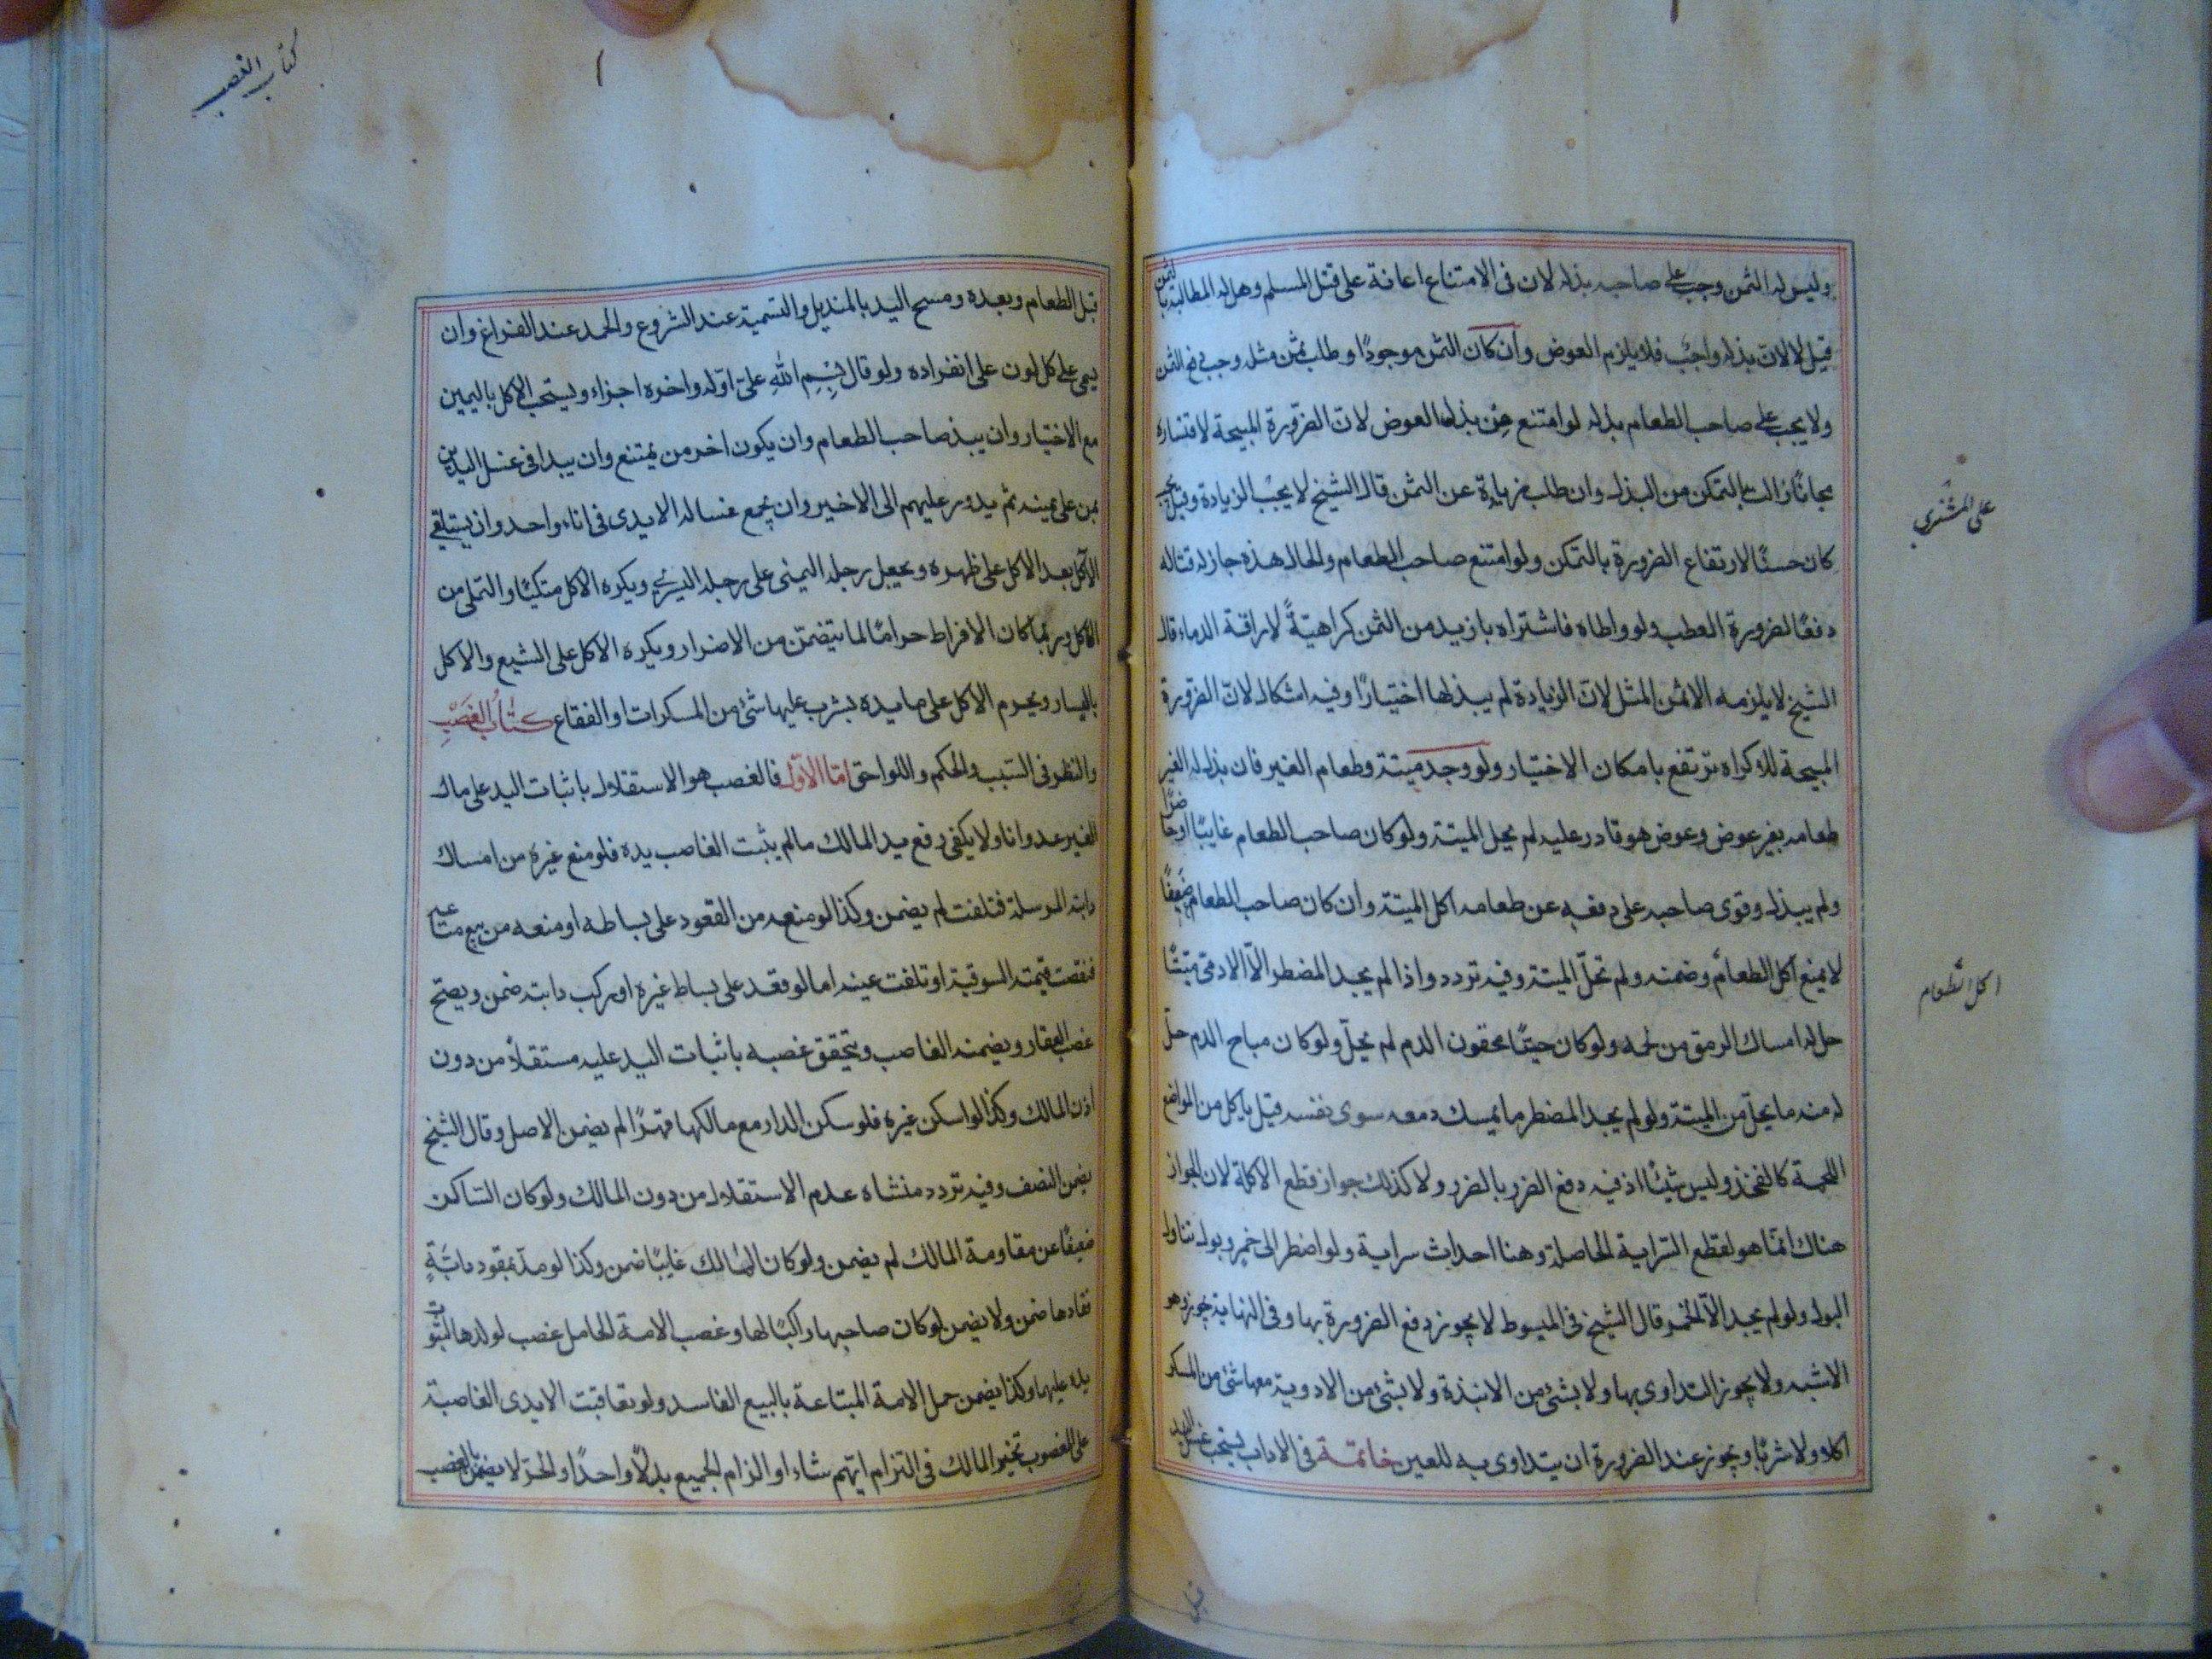 وليس له الثمن وجب على صاحبه بذله لان فى الامتناع اعانة على قتل المسلم وهل له المطالبة بالثمن
قيل لا لان بذله واجب فلا يلزم العوض وان كان الثمن موجودًا وطلب ثمن مثله وجب دفع الثمن
ولا يجب على صاحب الطعام بذله لو امتنع من بذل العوض لان الضرورة المبيحة لاقتساره
مجانًا زالت بالتمكن من البذل وان طلب زيادة عن الثمن قال الشيخ لا يجب الزيادة ولو قيل يجب
كان حسنًا لارتفاع الضرورة بالتمكن ولو امتنع صاحب الطعام والحال هذه جاز له قتاله
دفعًا لضرورة العطب ولو واطاه فاشتراه بازيد من الثمن كراهيّةً لاراقة الدماء قال
الشيخ لا يلزمه الا ثمن المثل لان الزيادة لم يبذلها اختيارًا وفيه اشكال لان الضرورة
المبيحة للاكراه ترتفع بامكان الاختيار ولو وجد ميتة وطعام الغير فان بذل له الغير
طعامه بغير عوض وعوض هو قادر عليه لم يحل الميتة ولو كان صاحب الطعام غايبًا او حاضرًا
ولم يبذل وقوى صاحبه على دفعه عن طعامه اكل الميتة وان كان صاحب الطعام ضعيفًا
لا يمنع اكل الطعام وضمنه ولم تحلّ الميتة وفيه تردد واذا لم يجد المضطر الّا الادمى ميّتًا
حل له امساك الرمق من لحمه ولو كان حيًّا محقون الدم لم يحلّ ولو كان مباح الدم حلّ
له منه ما يحلّ من الميتة ولو لم يجد المضطر ما يمسك رمقه سوى نفسه قيل ياكل من المواضع
اللحمة كالفخذ وليس شيئًا اذ فيه دفع الضرر بالضرر ولا كذلك جواز قطع الاكلة لان الجواز
هناك انّما هو لقطع السراية الحاصلة وهنا احداث سراية ولو اضطر الى خمر وبول تناول
البول ولو لم يجد الّا الخمر قال الشيخ فى المبسوط لا يجوز دفع الضرورة بها وفى النهاية يجوز وهو
الاشبه ولا يجوز التداوى بها ولا بشئ من الانبذة ولا بشئ من الادوية معها شئ من المسكر
اكلا ولا شربًا ويجوز عند الضرورة ان يتداوى به للعين خاتمة فى الاداب يستحب غسل اليد
على المشترى
اكل الطعام
كتاب الغصب
قبل الطعام وبعده ومسح اليد بالمنديل والتسمية عند الشروع والحمد عند الفراغ وان
يسمى على كل لون على انفراده ولو قال بسم الله على اوّله واخره اجزاء ويستحب الاكل باليمين
مع الاختيار وان يبدء صاحب الطعام وان يكون اخر من يمتنع وان يبدا فى غسل اليدين
بمن على يمينه ثم يدور عليهم الى الاخير وان يجمع غسالة الايدى فى اناء واحد وان يستلقى
الآكل بعد الاكل على ظهره ويجعل رجله اليمنى على رجله اليسرى ويكره الاكل متكيًا والتملى من
الاكل وربّما كان الافراط حرامًا لما يتضمّن من الاضرار ويكره الاكل على الشبع والاكل
باليسار ويحرم الاكل على مايده يشرب عليها شئ من المسكرات او الفقاع كتاب الغصب
والنظر فى السبب والحكم واللواحق امّا الاوّل فالغصب هو الاستقلال باثبات اليد على مال
الغير عدوانا ولا يكفى رفع يد المالك ما لم يثبت الغاصب يده فلو منع غيره من امساك
دابته المرسلة فتلفت لم يضمن وكذا لو منعه من القعود على بساطه او منعه من بيع متاعه
فنقصت قيمته السوقية او تلفت عينه اما لو قعد على بساط غيره او ركب دابته ضمن ويصح
غصب العقار ويضمنه الغاصب ويتحقق غصبه باثبات اليد عليه مستقلاً من دون
اذن المالك وكذا لو اسكن غيره فلو سكن الدار مع مالكها قهرًا لم يضمن الاصل وقال الشيخ
يضمن النصف وفيه تردد منشاه عدم الاستقلال من دون المالك ولو كان الساكن
ضعيفًا عن مقاومة المالك لم يضمن ولو كان المالك غايبًا ضمن وكذا لو مدّ بمقود دابّةٍ
فقادها ضمن ولا يضمن لو كان صاحبها راكبًا لها وغصب الامة الحامل غصب لولدها لثبوت
يده عليهما وكذا يضمن حمل الامة المبتاعة بالبيع الفاسد ولو تعاقبت الايدى الغاصبة
على المغصوب تخير المالك فى التزام ايّهم شاء او الزام الجميع بدلاً واحدًا والحرّ لا يضمن بالغصب